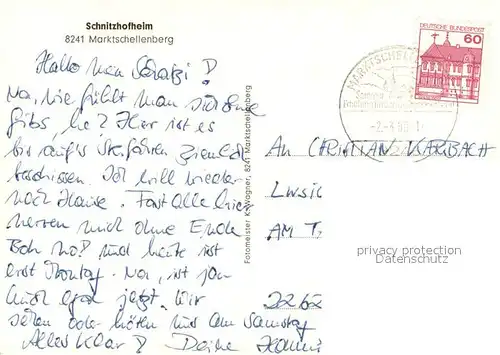 Schnitzhofheim
8241 Marktschellenberg
Hallo mein Schatzi!
Na, wie fühlt man sich ohne
Gibs, he? Hier ist es
bis auf's Skifahren ziemlich
beschissen. Ich will wieder
nach Hause. Fast alle hier
nerven mich ohne Ende
und heute ist
erst Montag. Na, ist ja
auch egal jetzt. Wir
sehen oder hören uns am Samstag
Alles klar! Deine
Fotomeister K. Wagner, 8241 Marktschellenberg
DEUTSCHE BUNDESPOST
60
MARKTSCHELLENBERG
An CHRISTIAN KARBACH
AM T
2262
privacy protection
Datenschutz